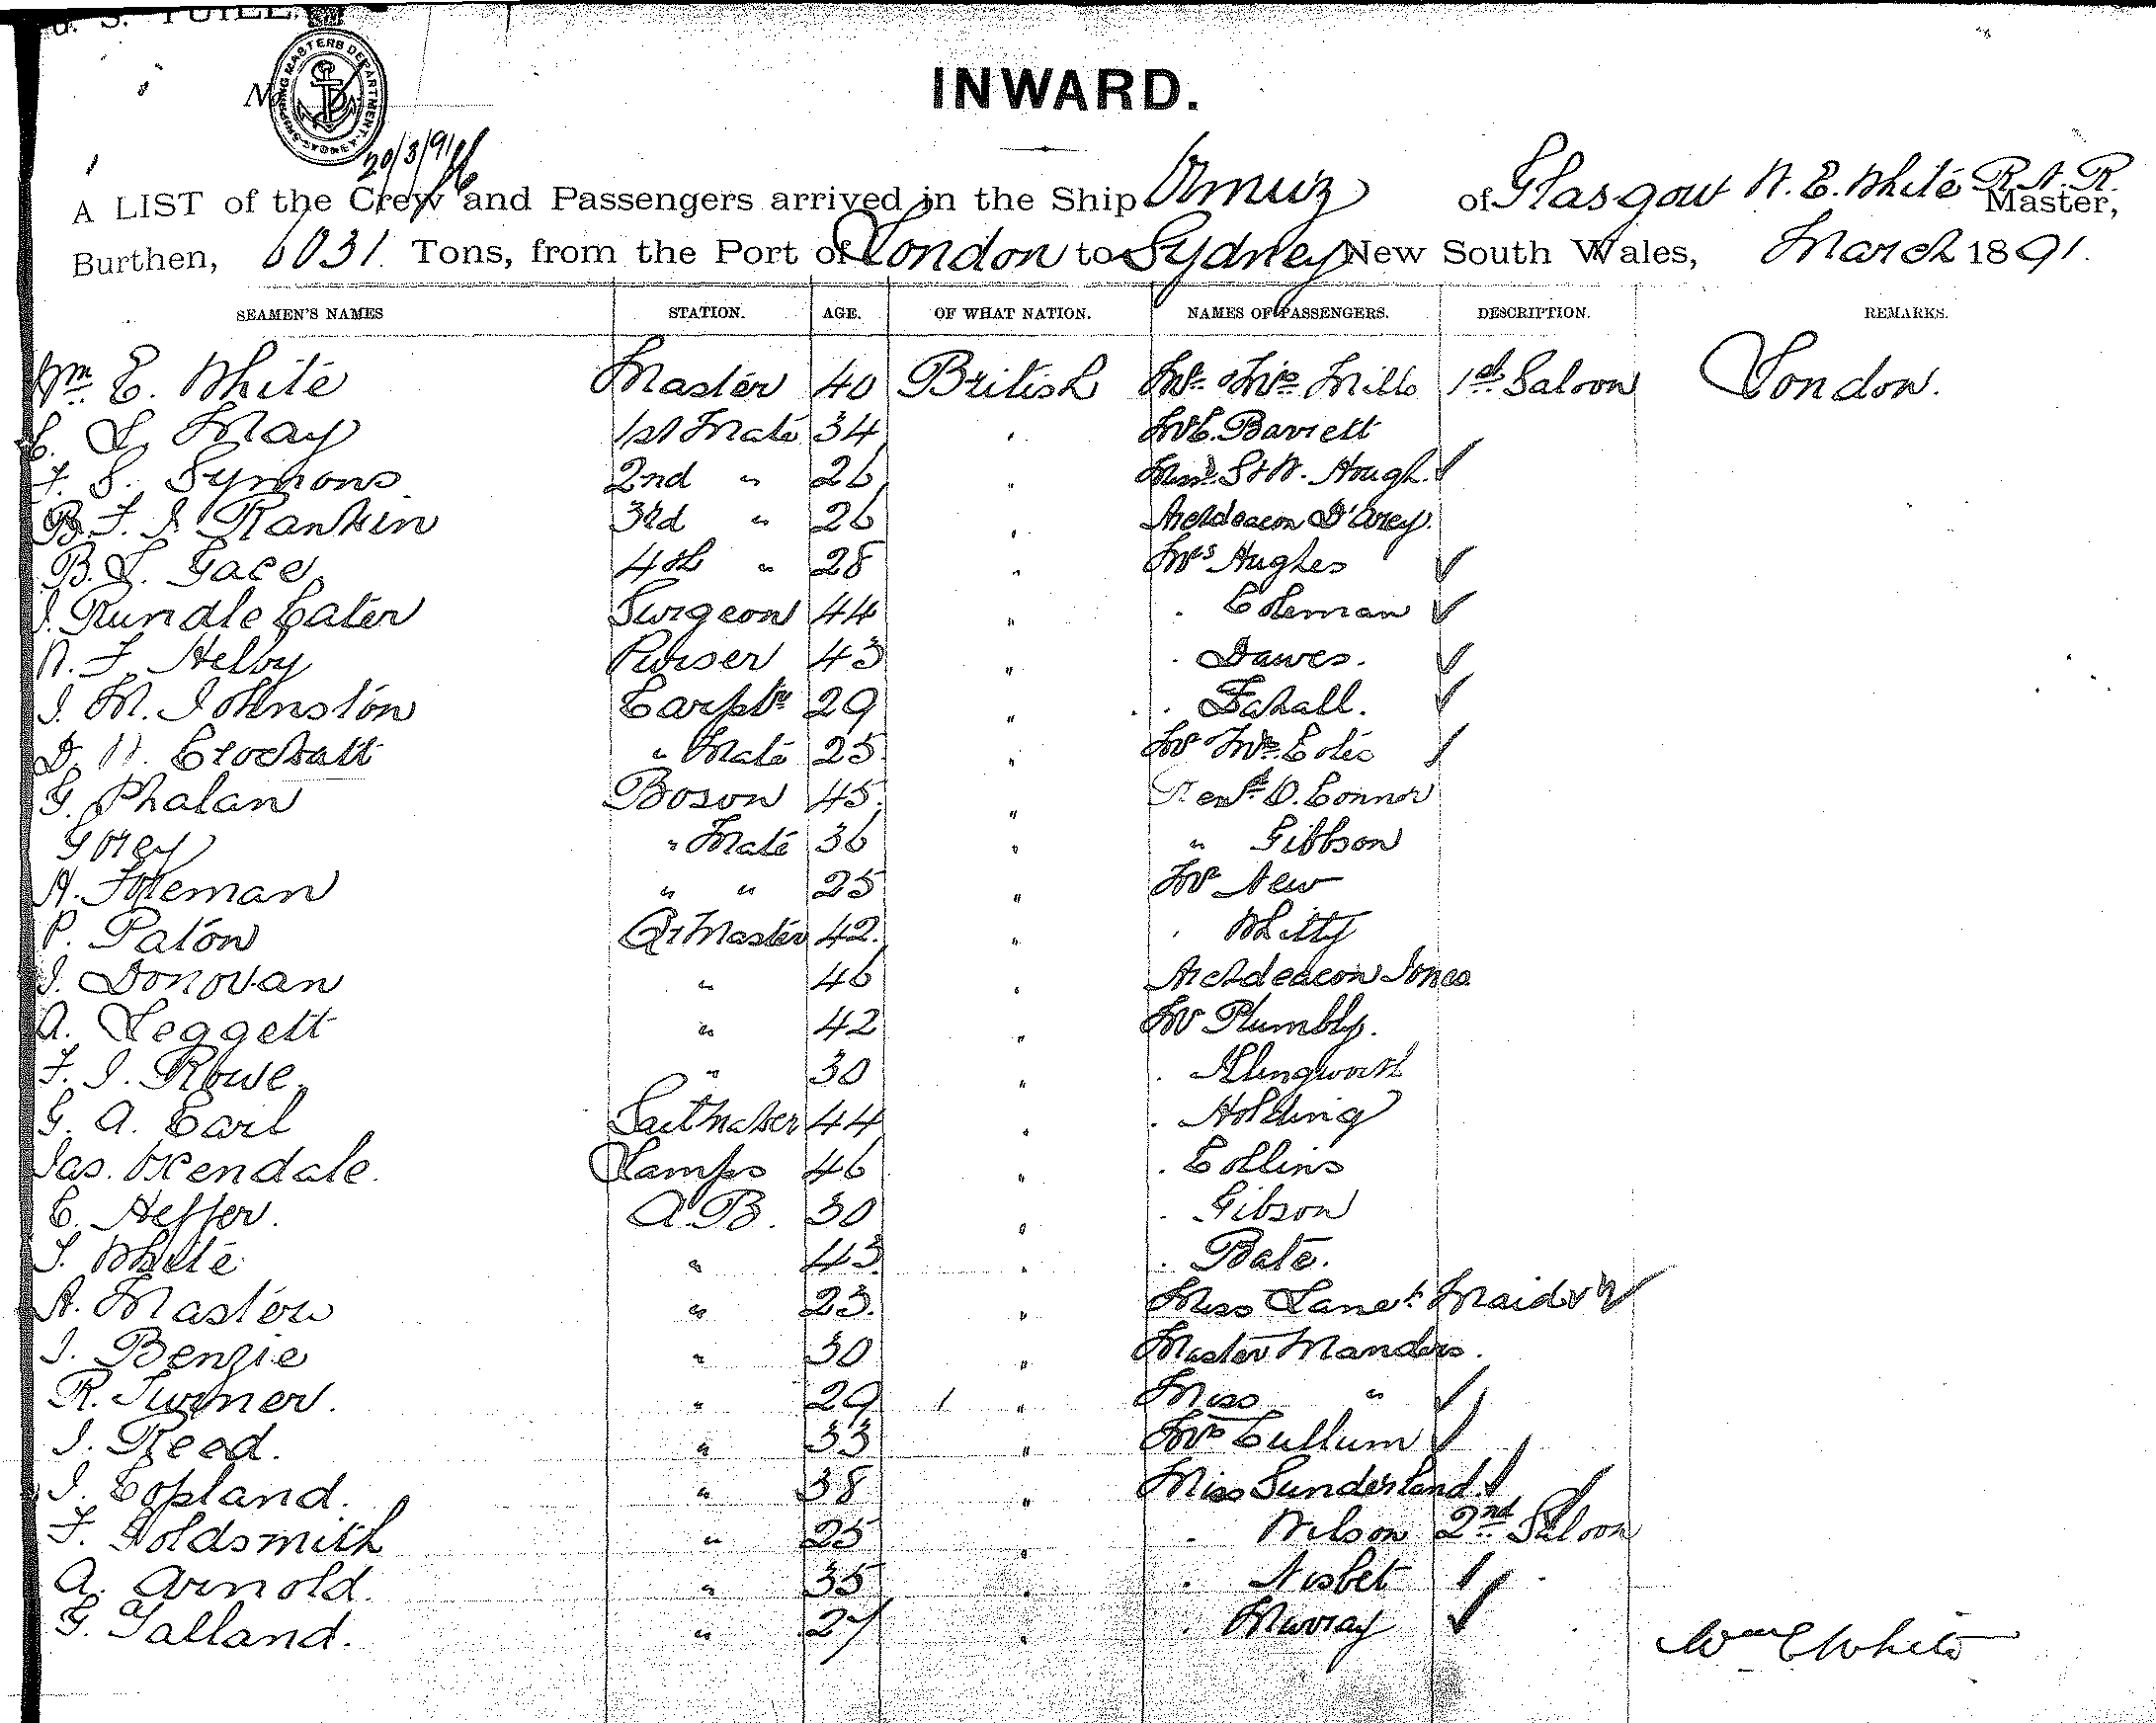 INWARD.
SHIPPING MASTERS DEPARTMENT SYDNEY
No
20/3/91
A LIST of the Crew and Passengers arrived in the Ship Ormuz of Glasgow W. E. White R.N.R. Master,
Burthen, 6031 Tons, from the Port of London to Sydney New South Wales, March 1891.
SEAMEN'S NAMES STATION. AGE. OF WHAT NATION. NAMES OF PASSENGERS. DESCRIPTION. REMARKS.
Wm E. White Master 40 British Mr & Mrs Mills 1st Saloon London.
C. L. May 1st Mate 34 " Barrett
F. S. Symons 2nd " 26 " Hough
B. F. J. Rankin 3rd " 26 " Archdeacon D'Arey.
B. L. Gace 4th " 28 " Mrs Hughes
J. Rundle Cater Surgeon 44 " " Coleman
N. F. Helby Purser 43 " " Dawes.
J. M. Johnston Carptr 29 " " Fahall.
D. Crockatt " Mate 25 " Mr Mrs Cotes
G. Phalan Boson 45 " Revd O. Connor
Gorey " Mate 36 " " Gibbson
H. Foreman " " 25 " Mr New
P. Paton Qr Master 42 " " Whitty
J. Donovan " 46 " Archdeacon Jones
A. Leggett " 42 " Mr Plumbly.
F. J. Rowe " 30 " " Illingworth
G. A. Earl Sailmaker 44 " " Holding
Jas. Oxendale. Lamps 46 " " Collins
C. Heffer. A.B. 30 " " Gibson
T. White " 43 " " Bate.
A. Maston " 23 " Miss Lane & Maid
J. Benzie " 30 " Master Manders.
R. Turner. " 29 " Miss "
J. Reed. " 33 " Mrs Cullum
J. Copland. " 38 " Miss Sunderland
F. Goldsmith " 25 " " Wilson 2nd Saloon
A. Arnold. " 35 " " Nisbet
G. Talland. " 27 " " Murray
Wm E White